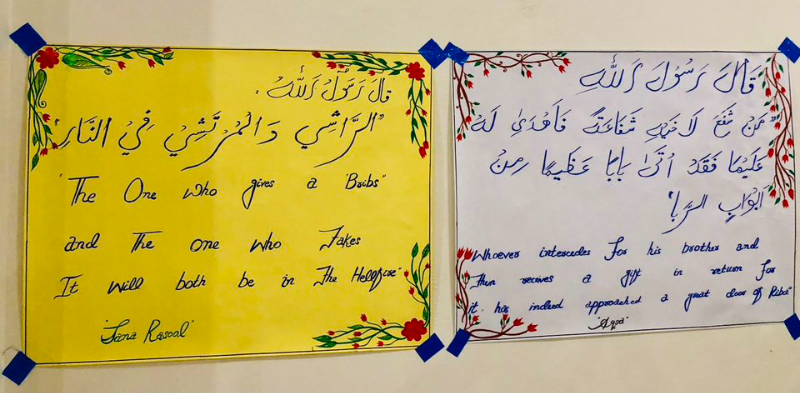 قَالَ رَسُوْلَ اَللّٰهِ
"اَلرَّاشِي وَالْمُرْتَشِيْ فِيْ النَّارِ"
"The One who gives a "Bribs"
and The one who Takes
It will both be in The Hellfire"
"Sana Rasool"
قَالَ رَسُوْلَ اَللّٰهِ
"مَنْ شَفَعَ لَاخِيْهِ شَفَاعَةً فَاَهْدَىٰ لَهُ
عَلَيْهَا فَقَدْ اَتٰى بَابًا عَظِيْمًا مِنْ
اَبْوَابِ الرِّبَا"
Whoever intercedes for his brother and
Then receives a gift in return for
it has indeed approached a great door of Riba"